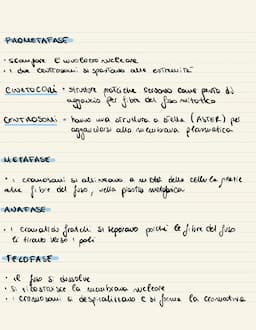 PROMETAFASE
• scompare l'involucro nucleare
• i due centrosomi si spostano alle estremità
CINETOCORI • strutture proteiche servono come punto di
aggancio per fibre del fuso mitotico
CENTROSOMI • hanno una struttura a stella (ASTER) per
agganciarsi alla membrana plasmatica
METAFASE
• i cromosomi si allineano a metà della cellula grazie
alle fibre del fuso, nella piastra metafasica
ANAFASE
• i cromatidi fratelli si separano poiché le fibre del fuso
li tirano verso i poli
TELOFASE
• il fuso si dissolve
• si ricostruisce la membrana nucleare
• i cromosomi si despiralizzano e si forma la cromatina